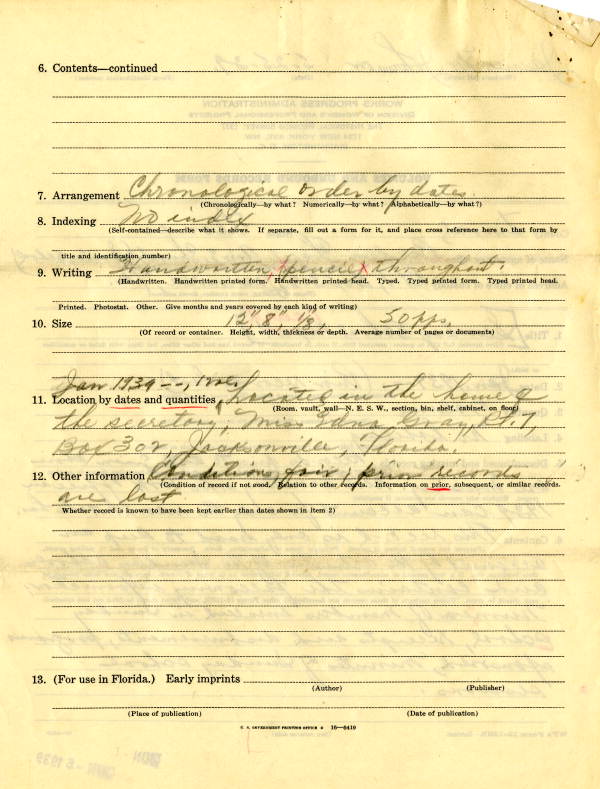 6. Contents—continued
7. Arrangement Chronological order by dates.
(Chronologically—by what? Numerically—by what? Alphabetically—by what?)
8. Indexing No index
(Self-contained—describe what it shows. If separate, fill out a form for it, and place cross reference here to that form by
title and identification number)
9. Writing Handwritten, pencil throughout.
(Handwritten. Handwritten printed form. Handwritten printed head. Typed. Typed printed form. Typed printed head.
Printed. Photostat. Other. Give months and years covered by each kind of writing)
10. Size 12", 8", 1/8, 50 pps.
(Of record or container. Height, width, thickness or depth. Average number of pages or documents)
Jan 1939 --, 1 vol.
11. Location by dates and quantities, Located in the home of
(Room, vault, wall—N. E. S. W., section, bin, shelf, cabinet, on floor)
the secretary, Miss Edna Gray, Rt. 7,
Box 302, Jacksonville, Florida.
12. Other information Condition, fair, prior records
(Condition of record if not good. Relation to other records. Information on prior, subsequent, or similar records.
are lost
Whether record is known to have been kept earlier than dates shown in item 2)
13. (For use in Florida.) Early imprints
(Author) (Publisher)
(Place of publication) (Date of publication)
U. S. GOVERNMENT PRINTING OFFICE 16—6419